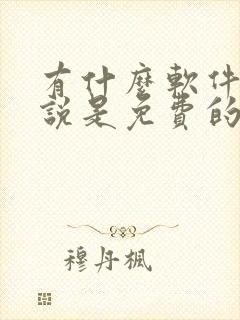 有什麼軟件
說是免費的
穆丹楓